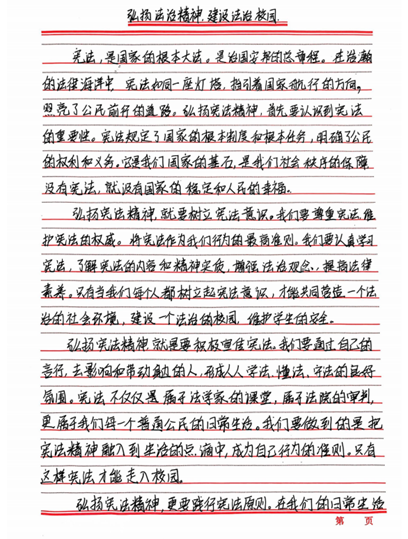 弘扬法治精神,建设法治校园
宪法,是国家的根本大法。是治国安邦的总章程。在浩瀚
的法律海洋中 宪法如同一座灯塔,指引着国家航行的方向,
照亮了公民前行的道路。弘扬宪法精神,首先要认识到宪法
的重要性。宪法规定了国家的根本制度和根本任务,明确了公民
的权利和义务。它是我们国家的基石,是我们社会秩序的保障
没有宪法,就没有国家的稳定和人民的幸福。
弘扬宪法精神,就要树立宪法意识。我们要尊重宪法,维
护宪法的权威。将宪法作为我们行为的最高准则。我们要认真学习
宪法,了解宪法的内容和精神实质,增强法治观念,提高法律
素养。只有当我们每个人都树立起宪法意识,才能共同营造一个法
治的社会环境,建设一个法治的校园,维护学生的安全。
弘扬宪法精神,就是要积极宣传宪法。我们要通过自己的
言行,去影响和带动身边的人,形成人人学法、懂法、守法的良好
氛围。宪法不仅仅是属于法学家的课堂,属于法院的审判,
更属于我们每一个普通公民的日常生活。我们要做到的是把
宪法精神融入到生活的点滴中,成为自己行为的准则。只有
这样宪法才能走入校园。
弘扬宪法精神,更要践行宪法原则。在我们的日常生活
第 页